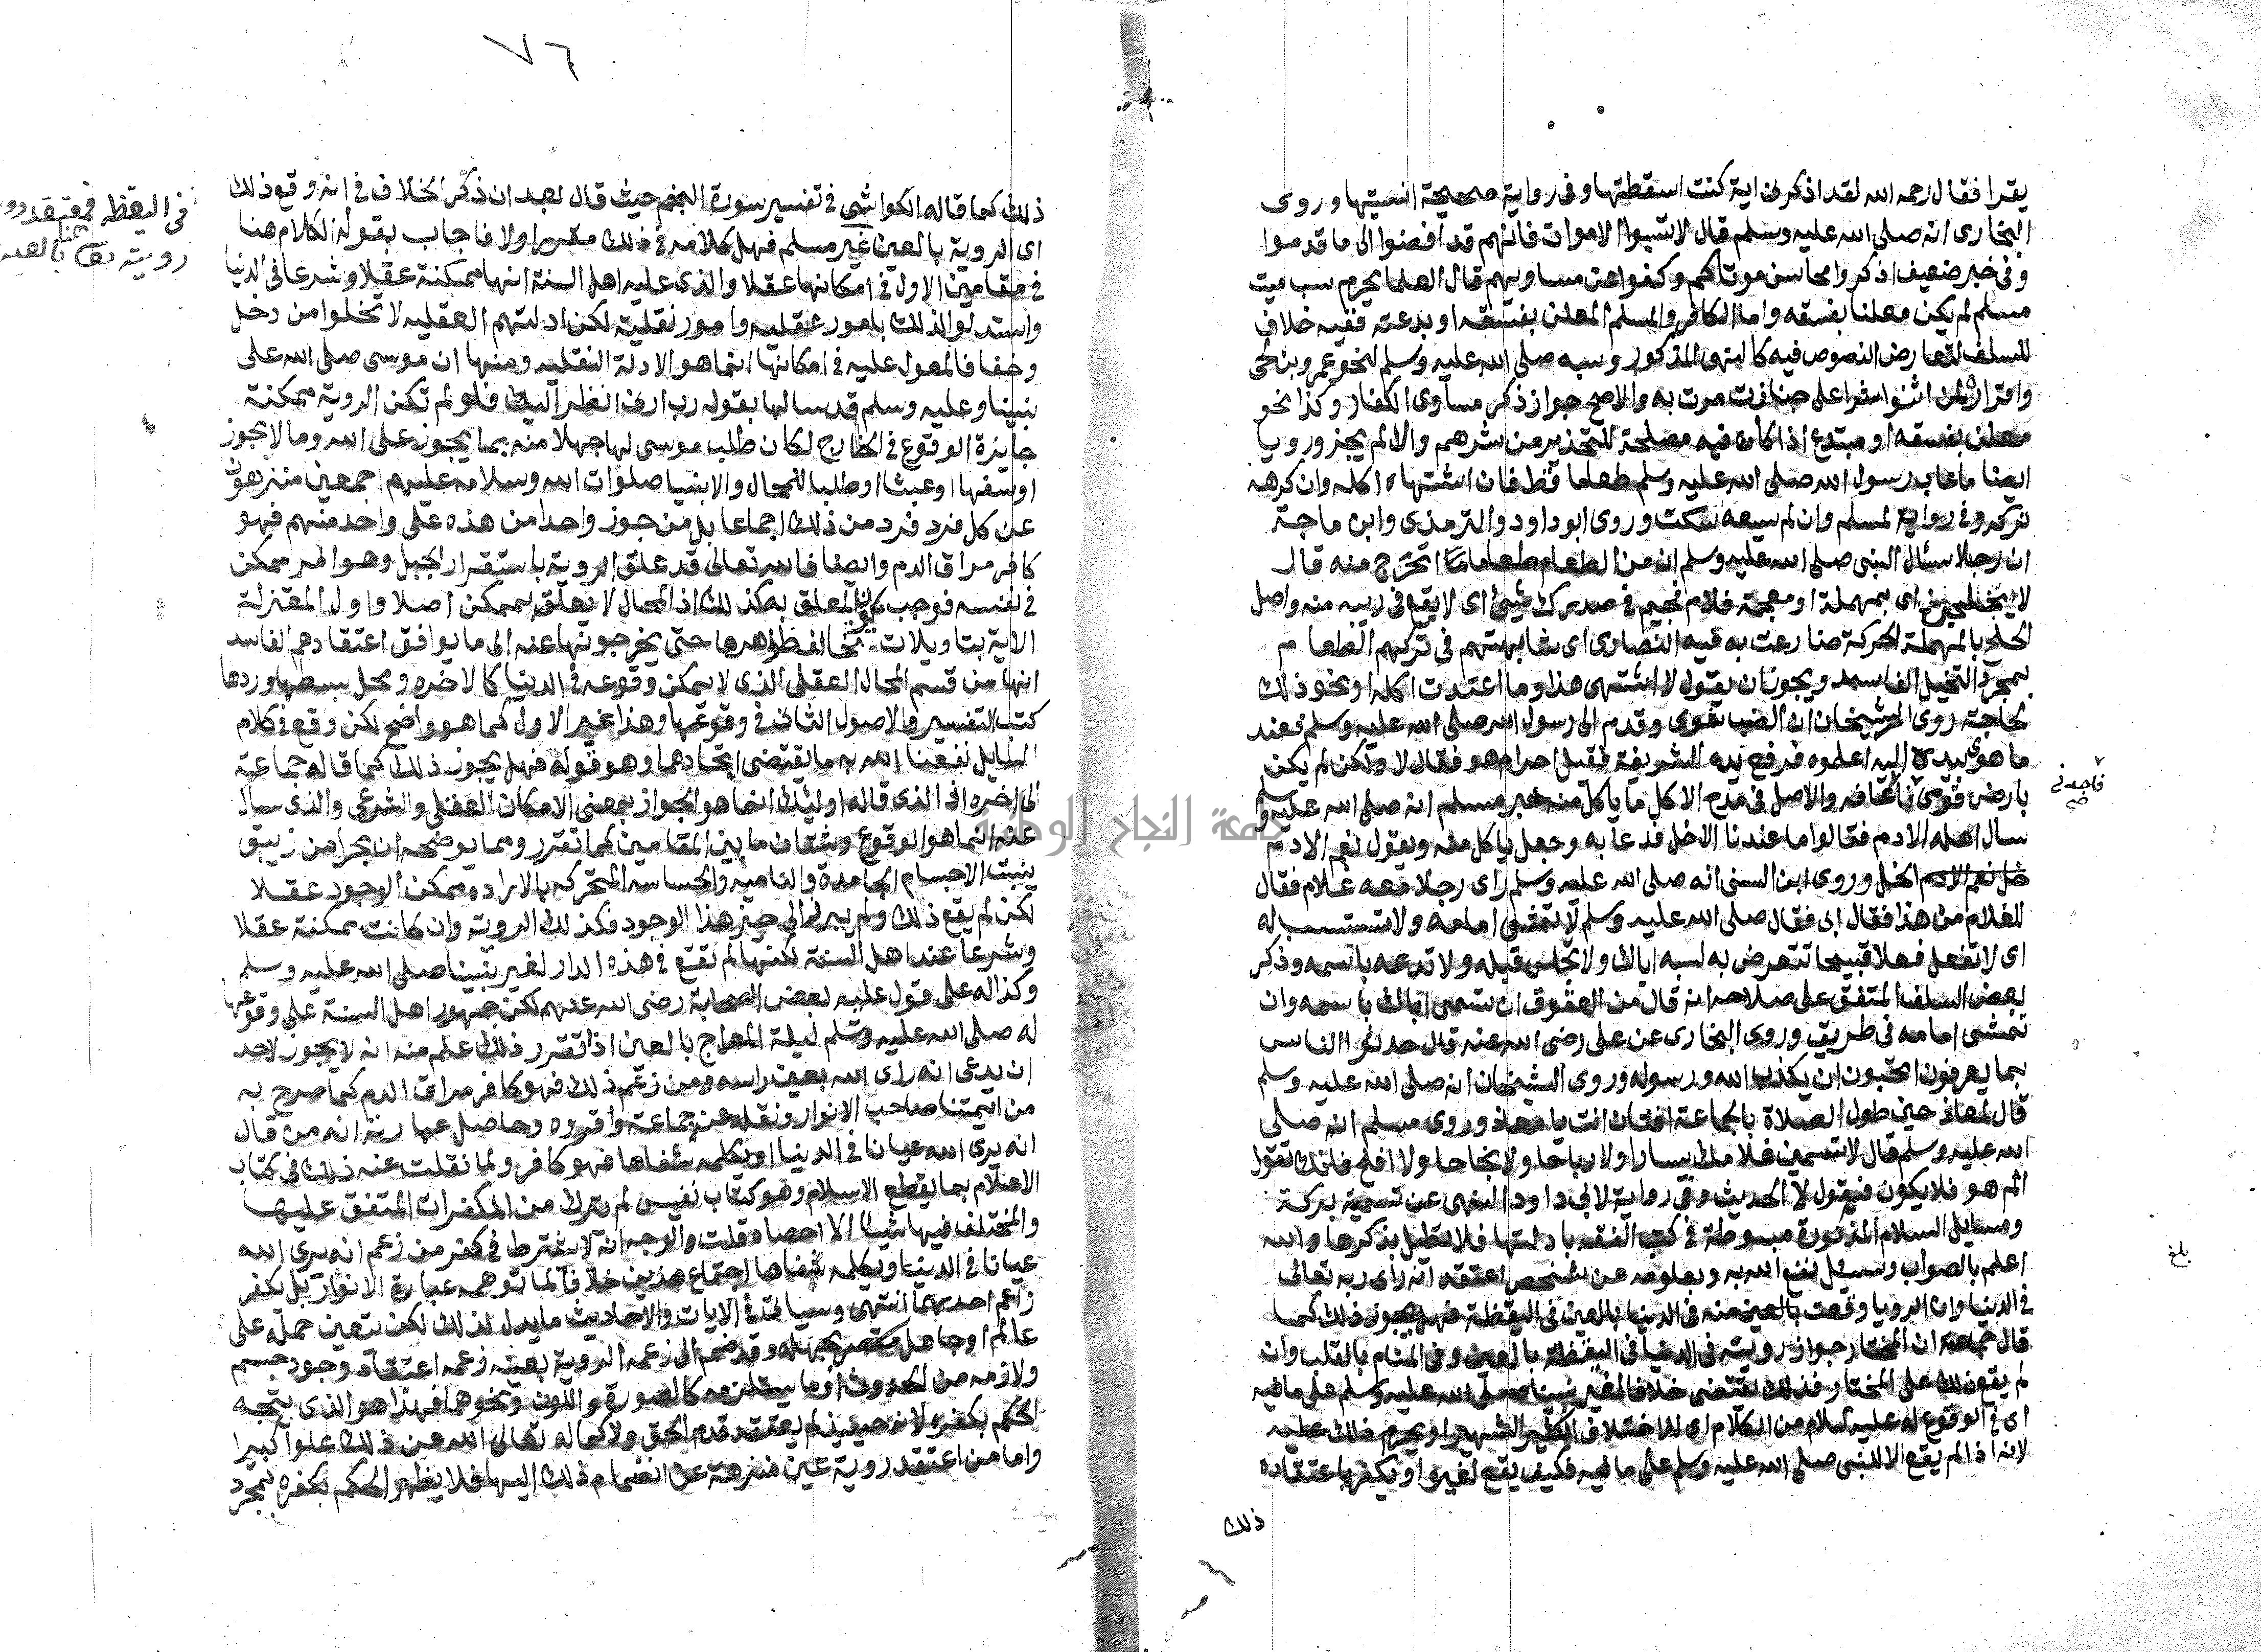 يقرا فقال رحمه الله لقد اذكرنى اية كنت اسقطتها وفى رواية صحيحة انسيتها وروى
البخارى انه صلى الله عليه وسلم قال لا تسبوا الاموات فانهم قد افضوا الى ما قدموا
وفى خبر ضعيف اذكروا محاسن موتاكم وكفوا عن مساويهم قال العلما يحرم سب ميت
مسلم لم يكن معلنا بفسقه واما الكافر والمسلم المعلن بفسقه او بدعته ففيه خلاف
للسلف لتعارض النصوص فيه كالنهى المذكور وسبه صلى الله عليه وسلم لنحو عمرو بن لحى
واقراره لمن اثنوا شرا على جنازت مرت به والاصح جواز ذكر مساوى الكفار وكذا نحو
معلن بفسقه او مبتدع اذا كان فيه مصلحة للتحذير من شرهم والا لم يجز ورويا
ايضا ما عاب رسول الله صلى الله عليه وسلم طعاما قط فان اشتهاه اكله وان كرهه
تركه وفى رواية لمسلم وان لم يشتهه سكت وروى ابو داود والترمذى وابن ماجة
ان رجلا سئال النبى صلى الله عليه وسلم ان من الطعام طعاما اتحرج منه قال
لا يتحلجن اى بمهملة او معجمة فلام فجيم فى صدرك شيئ اى لا يقع فى ريبه منه واصل
الحلج بالمهملة الحركة ضارعت به فيه النصارى اى شابهتهم فى تركهم الطعام
بمجرد التخيل الفاسد ويجوز ان يقول لا اشتهى هذا وما اعتدت اكله او نحو ذلك
لحاجة روى الشيخان ان الضب شوى وقدم الى رسول الله صلى الله عليه وسلم فعند
ما هوى بيده اليه اعلموه فرفع يده الشريفة فقيل احرام هو فقال لا ولكن لم يكن
بارض قومى فاجدنى اعافه والاصل فى مدح الاكل ما ياكل منه خبر مسلم انه صلى الله عليه وسلم
سال اهله الادم فقالوا ما عندنا الا خل فدعا به وجعل ياكل منه ويقول نعم الادم
الخل وروى ابن السنى انه صلى الله عليه وسلم راى رجلا معه غلام فقال
للغلام من هذا فقال ابى فقال صلى الله عليه وسلم لا تمشى امامه ولا تستسب له
اى لا تفعل فعلا قبيحا تتعرض به لسبه اياك ولا تجلس قبله ولا تدعه باسمه وذكر
بعض السلف المتفق على صلاحه انه قال من العقوق ان تسمى اباك باسمه وان
تمشى امامه فى طريق وروى البخارى عن على رضى الله عنه قال حدثوا الناس
بما يعرفون اتحبون ان يكذب الله ورسوله وروى الشيخان انه صلى الله عليه وسلم
قال لمعاذ حين طول الصلاة بالجماعة افتان انت يا معاذ وروى مسلم انه صلى
الله عليه وسلم قال لا تسمين غلامك يسارا ولا رباحا ولا نجاحا ولا افلح فانك تقول
اثم هو فلا يكون فيقول لا الحديث وفى رواية لابى داود النهى عن تسمية بركة
ومسايل السلام المذكورة مبسوطة فى كتب الفقه بادلتها فلا نطيل بذكرها والله
اعلم بالصواب وسئل نفع الله به وبعلومه عن شخص اعتقد انه راى ربه تعالى
فى الدنيا وان الرويا وقعت بالعين منه فى الدنيا بالعين فى اليقظة فهل يجوز ذلك كما
قال جماعه ان المختار جواز رويته فى الدنيا فى اليقظة بالعين وفى المنام بالقلب وان
لم يقع ذلك على المختار فذلك يقتضى خلافا لغير نبينا صلى الله عليه وسلم على ما فيه
اى فى الوقوع له عليه السلام من الكلام اى للاختلاف الكثير الشهير او يحرم ذلك عليه
لانه اذا لم يقع الا للنبى صلى الله عليه وسلم على ما فيه فكيف يقع لغيره او يكفر باعتقاده
ذلك
فاجدنى
صح
بلغ
٧٦
ذلك كما قاله الكواشى فى تفسير سورة النجم حيث قال بعد ان ذكر الخلاف فى انه وقع ذلك
اى الروية بالعين غير مسلم فهل كلامه فى ذلك مقررا ولا فاجاب بقوله الكلام هنا
فى مقامين الاول فى امكانها عقلا والذى عليه اهل السنة انها ممكنة عقلا وشرعا فى الدنيا
واستدلوا لذلك بامور عقليه وامور نقلية لكن ادلتهم العقليه لا تخلوا من دخل
وخفا فالمعول عليه فى امكانها انما هو الادلة النقليه ومنها ان موسى صلى الله على
نبينا وعليه وسلم قد سالها بقوله رب ارنى انظر اليك فلو لم تكن الروية ممكنة
جايزة الوقوع فى الخارج لكان طلب موسى لها جهلا منه بما يجوز على الله وما لا يجوز
او سفها او عبثا او طلبا للمحال والانبيا صلوات الله وسلامه عليهم اجمعين منزهون
عن كل فرد فرد من ذلك اجماعا بل من جوز واحدا من هذه على واحد منهم فهو
كافر مراق الدم وايضا فالله تعالى قد علق الروية باستقرار الجبل وهو امر ممكن
فى نفسه فوجب كون المعلق به كذلك اذ المحال لا يعلق بممكن اصلا واول المعتزلة
الاية بتاويلات تخالف ظاهرها حتى يخرجونها عنه الى ما يوافق اعتقادهم الفاسد
انها من قسم المحال العقلى الذى لا يمكن وقوعه فى الدنيا كالاخره ومحل بسطها وردها
كتب التفسير والاصول الثانى فى وقوعها وهذا غير الاول كما هو واضح لكن وقع فى كلام
السايل نفعنا الله به ما يقتضى اتحادهما وهو قوله فهل يجوز ذلك كما قاله جماعة
الى اخره اذ الذى قاله اوليئك انما هو الجواز بمعنى الامكان العقلى والشرعى والذى سال
عنه انما هو الوقوع وشتان ما بين المقامين كما تقرر ومما يوضحه ان بحرا من زيبق
ينبت الاجسام الجامدة والناميه والحساسه المتحركه بالاراده ممكن الوجود عقلا
لكن لم يقع ذلك ولم يبرز الى حيز هذا الوجود فكذلك الروية وان كانت ممكنة عقلا
وشرعا عند اهل السنة لكنها لم تقع فى هذه الدار لغير نبينا صلى الله عليه وسلم
وكذا له على قول عليه بعض الصحابة رضى الله عنهم لكن جمهور اهل السنة على وقوعها
له صلى الله عليه وسلم ليلة المعراج بالعين اذا تقرر ذلك علم منه انه لا يجوز لاحد
ان يدعى انه راى الله بعين راسه ومن زعم ذلك فهو كافر مراق الدم كما صرح به
من ايمتنا صاحب الانوار ونقله عن جماعة واقروه وحاصل عبارته انه من قال
انه يرى الله عيانا فى الدنيا او يكلمه شفاها فهو كافر ولما نقلت عنه ذلك فى كتاب
الاعلام بما يقطع الاسلام وهو كتاب نفيس لم يترك من المكفرات المتفق عليها
والمختلف فيها شيئا الا احصاه قلت والوجه انه لا يشترط فى كفر من زعم انه يرى الله
عيانا فى الدنيا ويكلمه شفاها اجتماع هذين خلافا لما توهمه عبارة الانوار بل يكفر
زاعم احديهما انتهى وسياتى فى الايات والاحاديث ما يدل لذلك لكن يتعين حمله على
عالم او جاهل مقصر بجهله وقد ضم الى زعمه الروية بعينه زعمه اعتقاد وجود جسم
ولازمه من الحدوث او ما يستلزمه كالصورة واللون ونحوهما فهذا هو الذى يتجه
الحكم بكفره لانه حينيذ لم يعتقد قدم الحق ولا كماله تعالى الله عن ذلك علوا كبيرا
واما من اعتقد روية عين منزهة عن انضمام ذلك اليها فلا يظهر الحكم بكفره بمجرد
فى اليقظه فمعتقد
رويته هنا بالعين
جامعة النجاح الوطنية